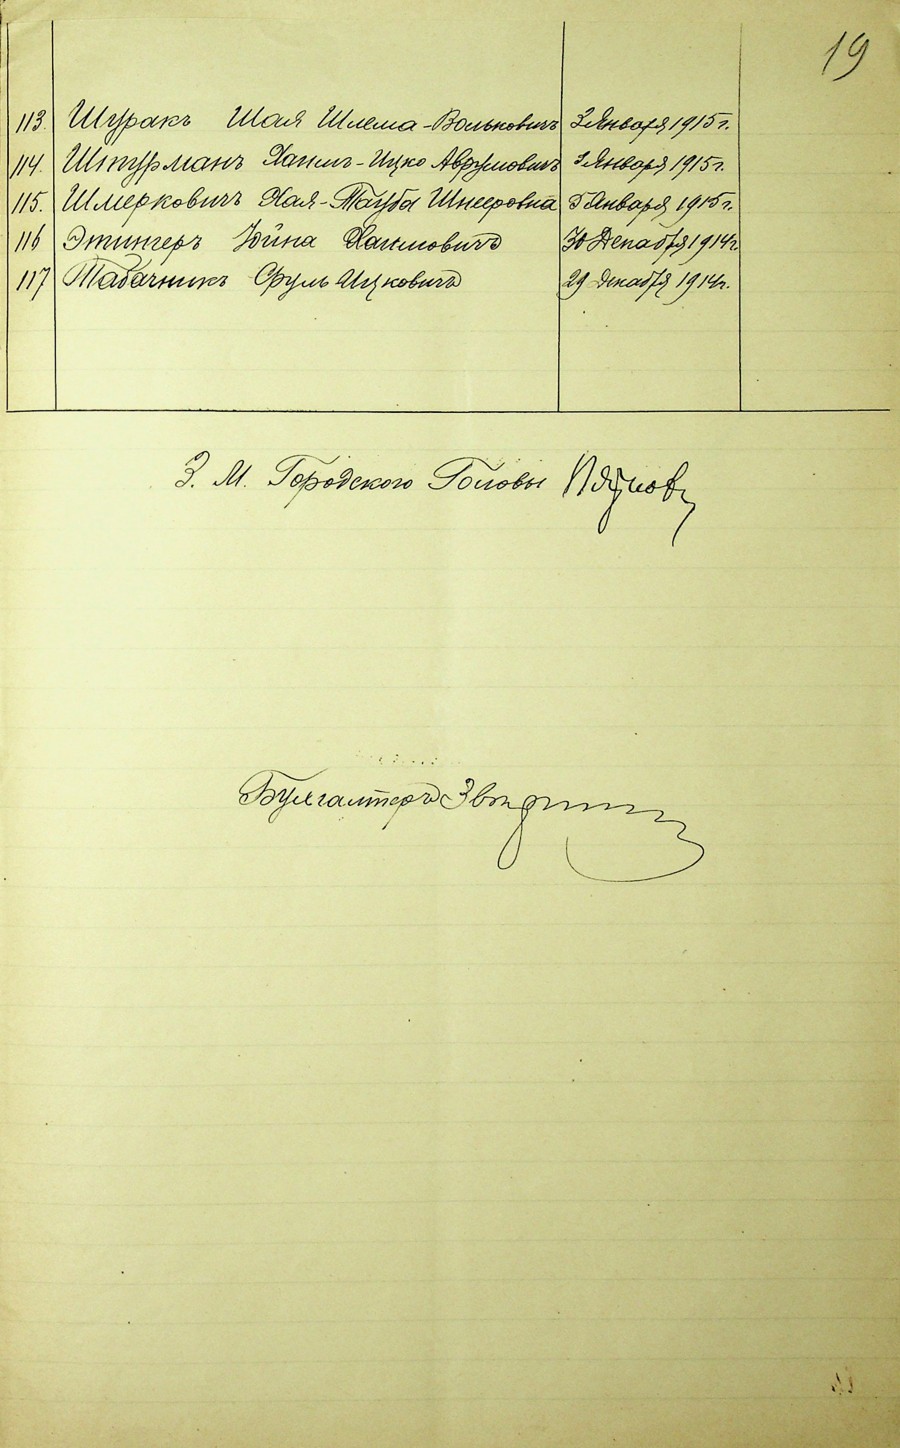 19
113. Шуракъ Шая Шлема-Вольковичъ 3 Января 1915 г.
114. Штурманъ Хаимъ-Ицко Аврумовичъ 3 Января 1915 г.
115. Шмерковичъ Хая-Тауба Шнееровна 5 Января 1915 г.
116 Этингеръ Юйна Хаимовичъ 30 Декабря 1914 г
117 Табачникъ Сруль Ицковичъ 29 Декабря 1914 г.
З. М. Городского Головы
Бухгалтеръ